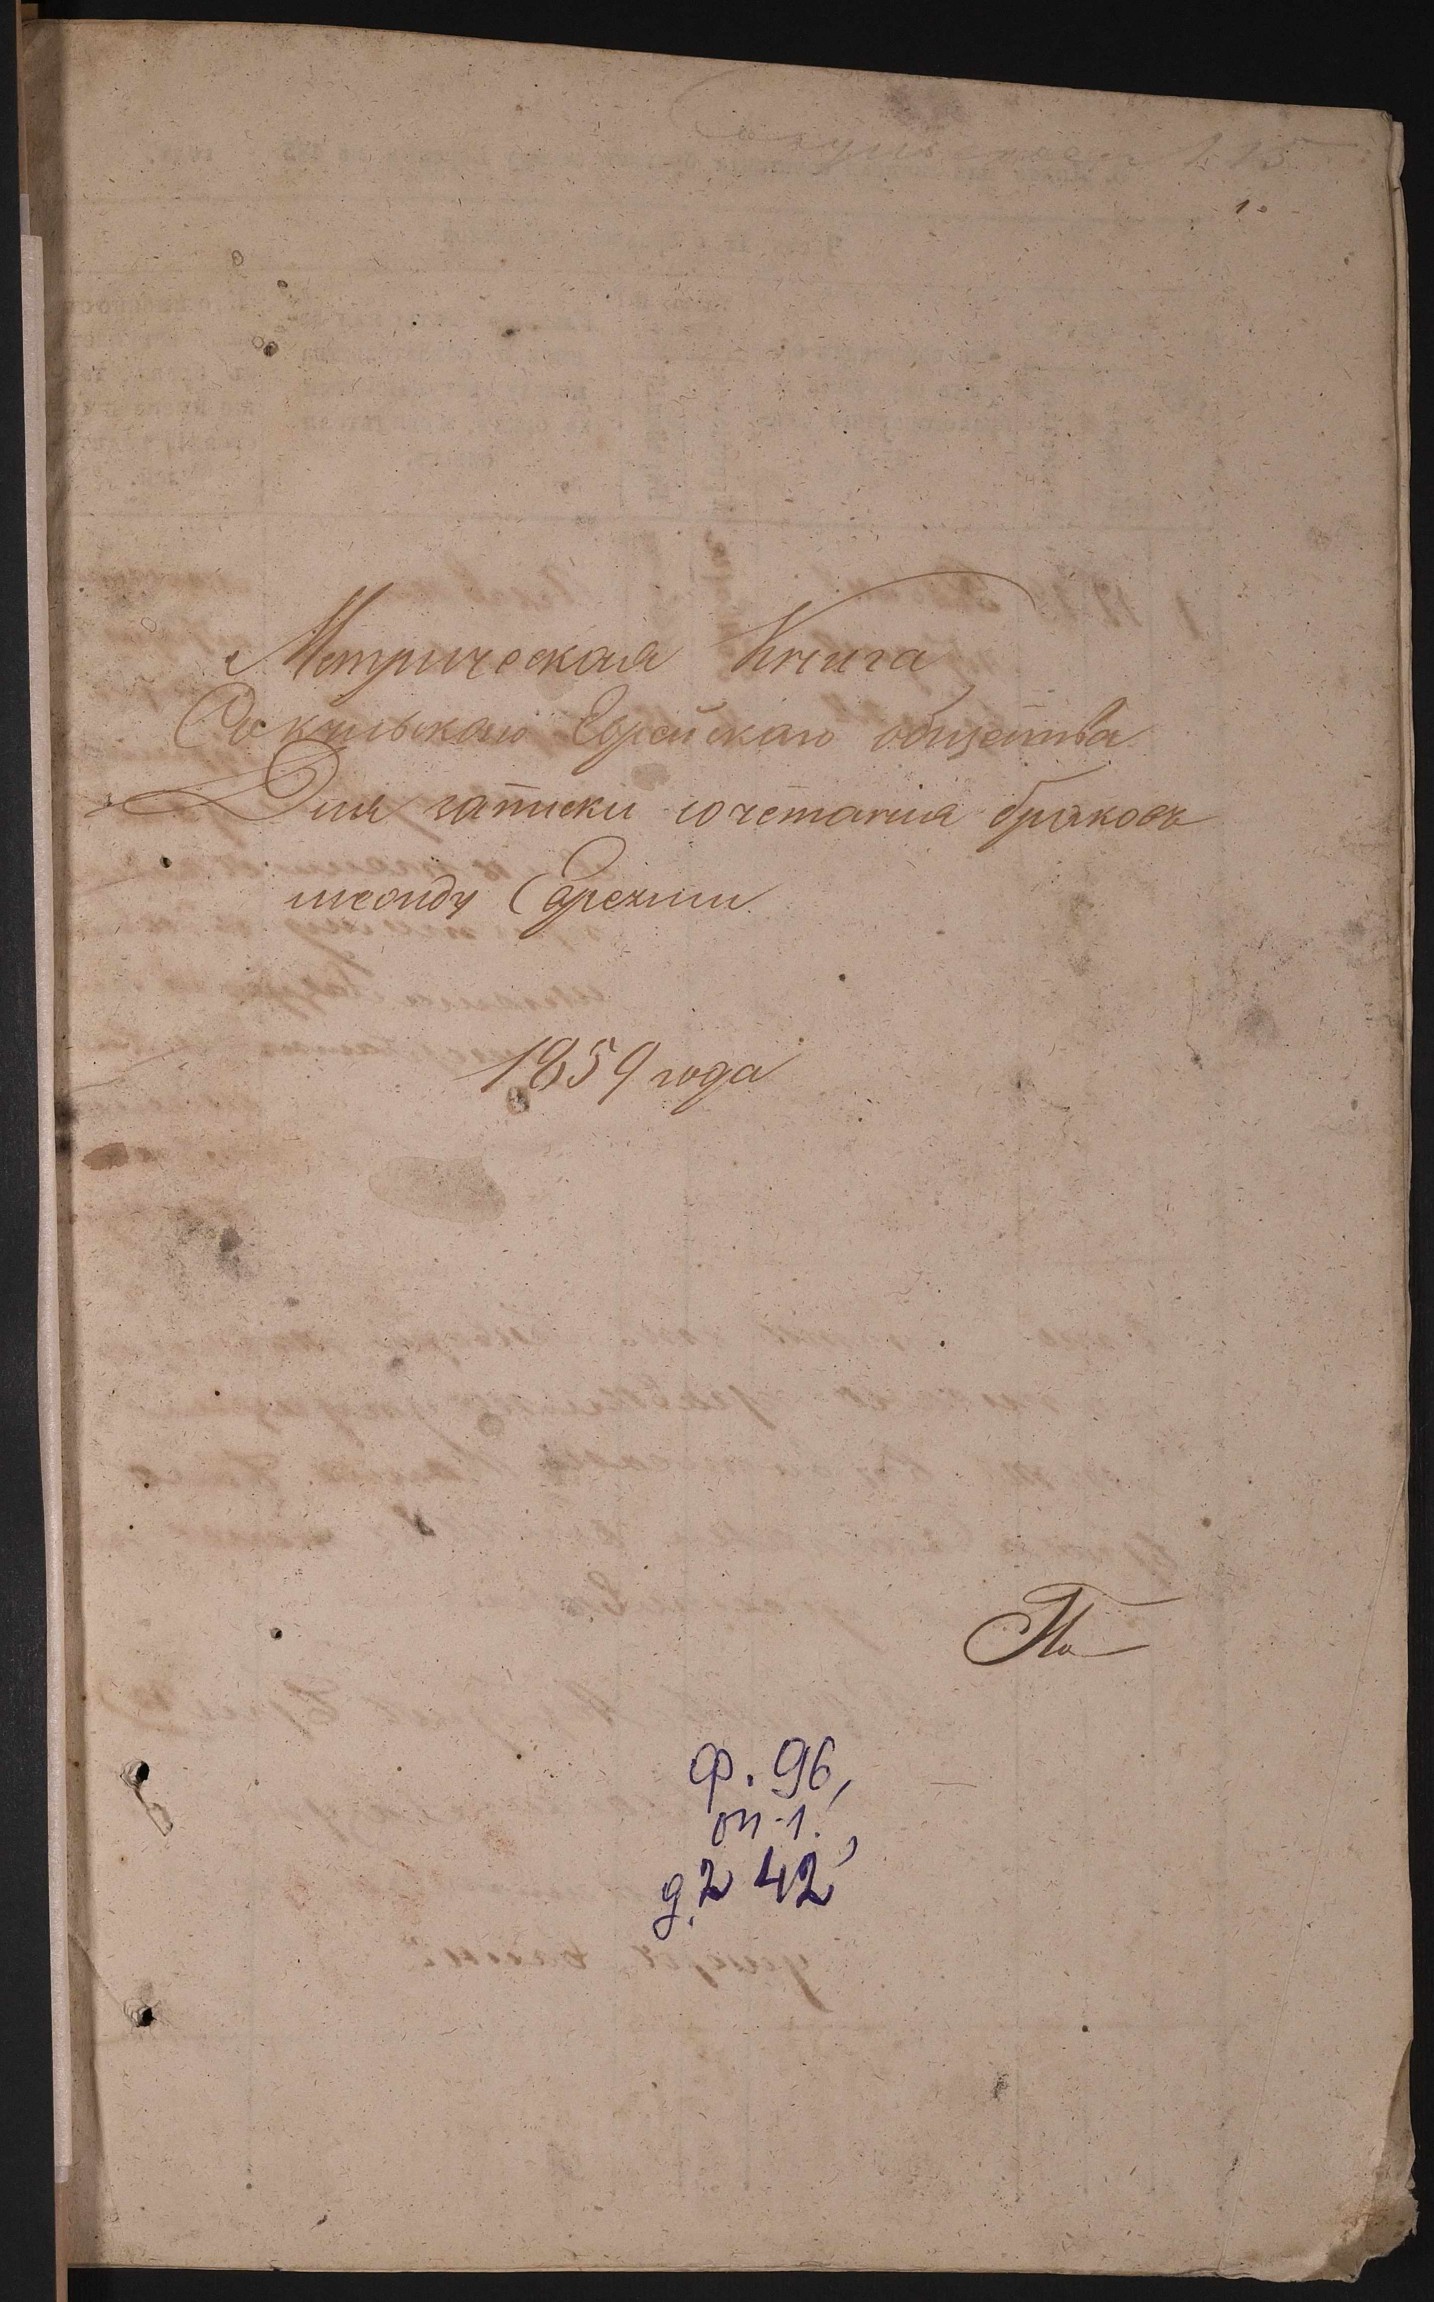 215
1.
Метрическая Книга
Еврейскаго общества
Для записки сочетания браковъ
между Евреями
1859 года
По
ф. 96,
оп-1.,
д. 242